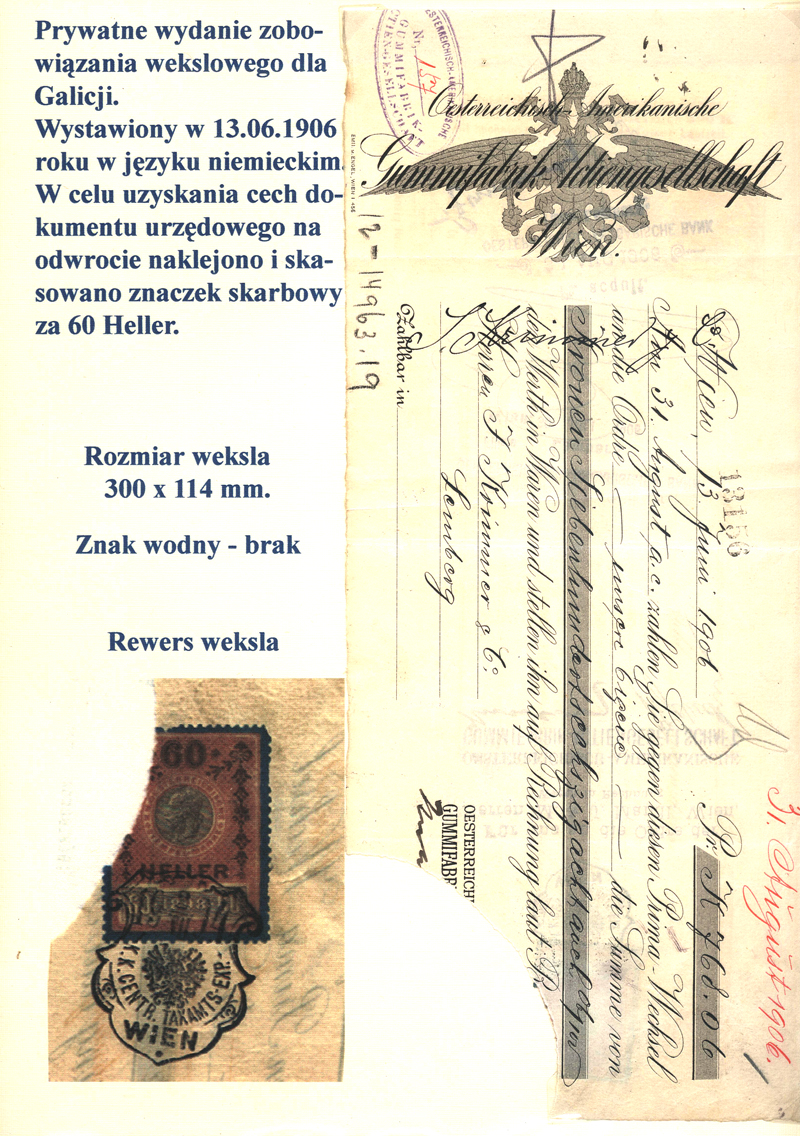 Prywatne wydanie zobo-
wiązania wekslowego dla
Galicji.
Wystawiony w 13.06.1906
roku w języku niemieckim.
W celu uzyskania cech do-
kumentu urzędowego na
odwrocie naklejono i ska-
sowano znaczek skarbowy
za 60 Heller.
Rozmiar weksla
300 x 114 mm.
Znak wodny - brak
Rewers weksla
60
HELLER
1898
K.K. CENTR. TAXAMTS-EXP.
WIEN
OESTERREICHISCH-AMERIKANISCHE
GUMMIFABRIK-
ACTIENGESELLSCHAFT
Nr. 157
EMIL M. ENGEL, WIEN I 456
Oesterreichisch-Amerikanische
Gummifabrik Actiengesellschaft
Wien.
12-14963.19
13156
Wien, 13 Juni 1906
Nr. K 768.06
31. August 1906.
Am 31. August a.c. zahlen Sie gegen diesen Prima-Wechsel
an die Ordre unsere Eigene die Summe von
Kronen Siebenhundertsechszigacht
den Werth in Waren und stellen ihn auf Rechnung laut
Herren J. Krimmer & C.
Lemberg
Zahlbar in
J. Krimmer
OESTERREICH
GUMMIFAB